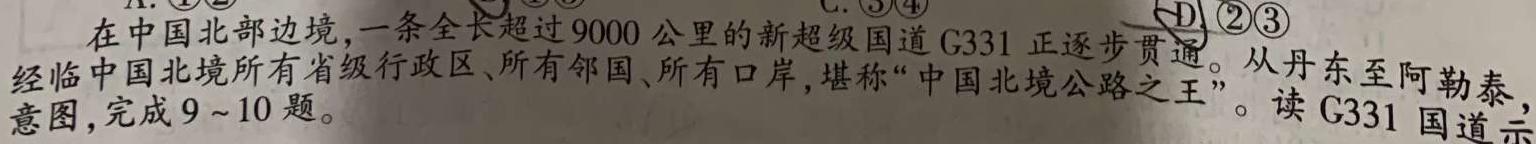 A. ①② C. ③④ D. ②③
在中国北部边境,一条全长超过9000公里的新超级国道G331正逐步贯通。从丹东至阿勒泰,
经临中国北境所有省级行政区、所有邻国、所有口岸,堪称“中国北境公路之王”。读G331国道示
意图,完成9~10题。